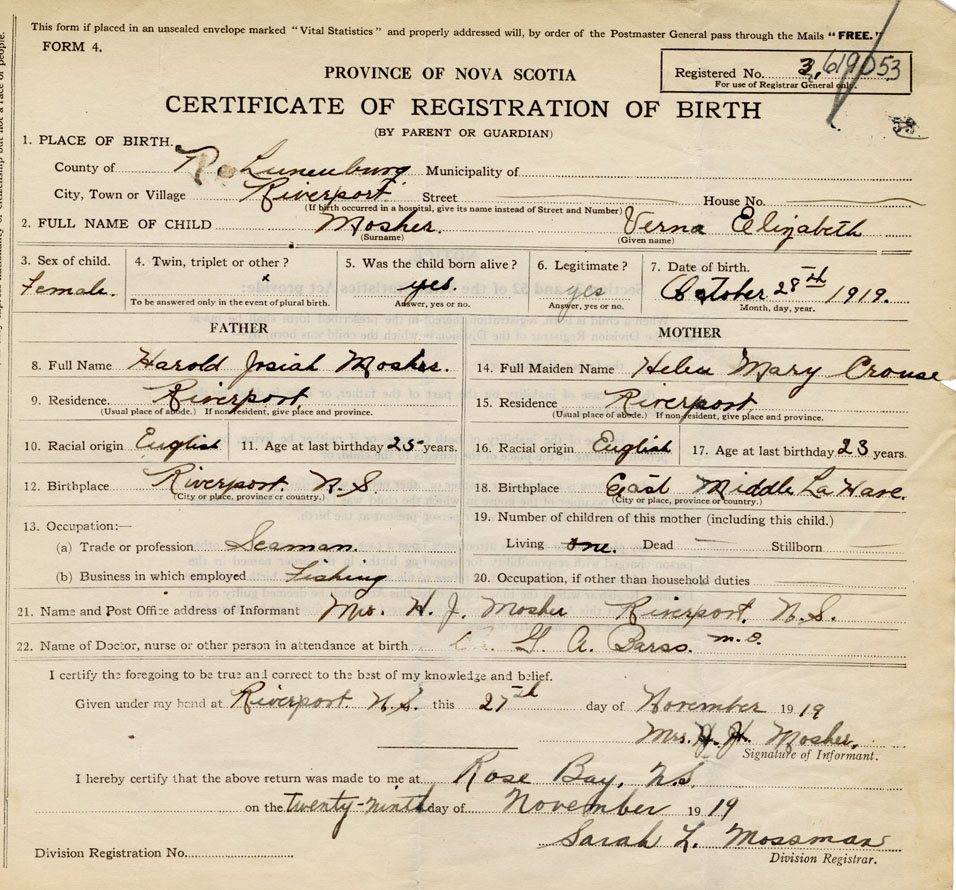 This form if placed in an unsealed envelope marked "Vital Statistics" and properly addressed will, by order of the Postmaster General pass through the Mails "FREE."
FORM 4.
Registered No. 3,619053
For use of Registrar General only.
PROVINCE OF NOVA SCOTIA
CERTIFICATE OF REGISTRATION OF BIRTH
(BY PARENT OR GUARDIAN)
1. PLACE OF BIRTH.
County of Lunenburg Municipality of
City, Town or Village Riverport Street House No.
(If birth occurred in a hospital, give its name instead of Street and Number)
2. FULL NAME OF CHILD Mosher. Verna Elizabeth
(Surname) (Given name)
3. Sex of child. 4. Twin, triplet or other? 5. Was the child born alive? 6. Legitimate? 7. Date of birth.
Female. x yes. yes October 28th 1919.
To be answered only in the event of plural birth. Answer, yes or no. Answer, yes or no. Month, day, year.
FATHER
8. Full Name Harold Josiah Mosher.
9. Residence. Riverport
(Usual place of abode.) If non-resident, give place and province.
10. Racial origin English 11. Age at last birthday 25 years.
12. Birthplace Riverport. N.S.
(City or place, province or country.)
13. Occupation:—
(a) Trade or profession. Seaman.
(b) Business in which employed Fishing
MOTHER
14. Full Maiden Name Helen Mary Crouse
15. Residence Riverport
(Usual place of abode.) If non-resident, give place and province.
16. Racial origin English 17. Age at last birthday 23 years.
18. Birthplace East Middle LaHave.
(City or place, province or country.)
19. Number of children of this mother (including this child.)
Living one. Dead — Stillborn
20. Occupation, if other than household duties
21. Name and Post Office address of Informant Mrs. H. J. Mosher Riverport. N.S.
22. Name of Doctor, nurse or other person in attendance at birth G. A. Barss. M.D.
I certify the foregoing to be true and correct to the best of my knowledge and belief.
Given under my hand at Riverport N.S. this 27th day of November 1919
Mrs. H. Mosher.
Signature of Informant.
I hereby certify that the above return was made to me at Rose Bay, N.S.
on the twenty-ninth day of November 1919
Sarah L. Mossman
Division Registrar.
Division Registration No.